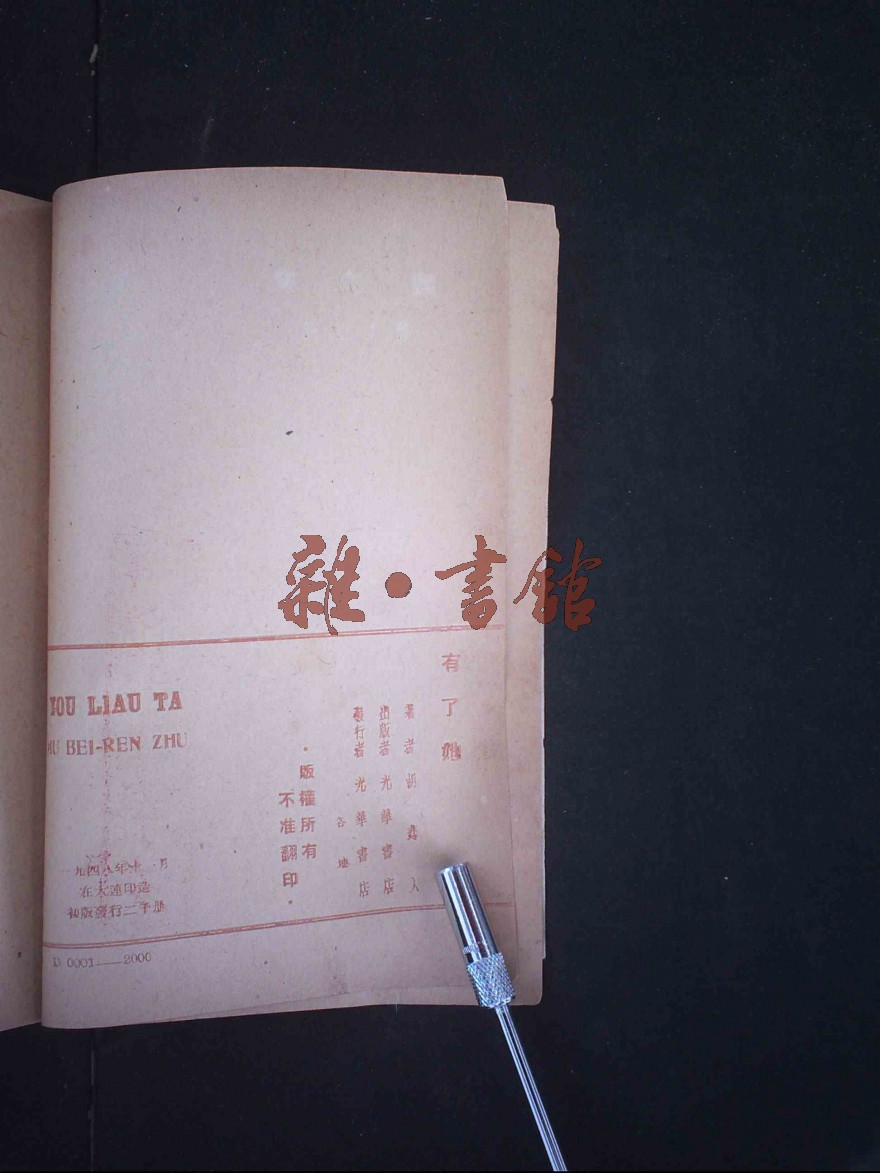 雜·書館
有了她
著者 胡 人
出版者 光華書店
發行者 各地 光華書店
·版權所有
不准翻印·
YOU LIAU TA
HU BEI-REN ZHU
一九四八年十一月
在大連印造
初版發行二千册
D 0001——2000